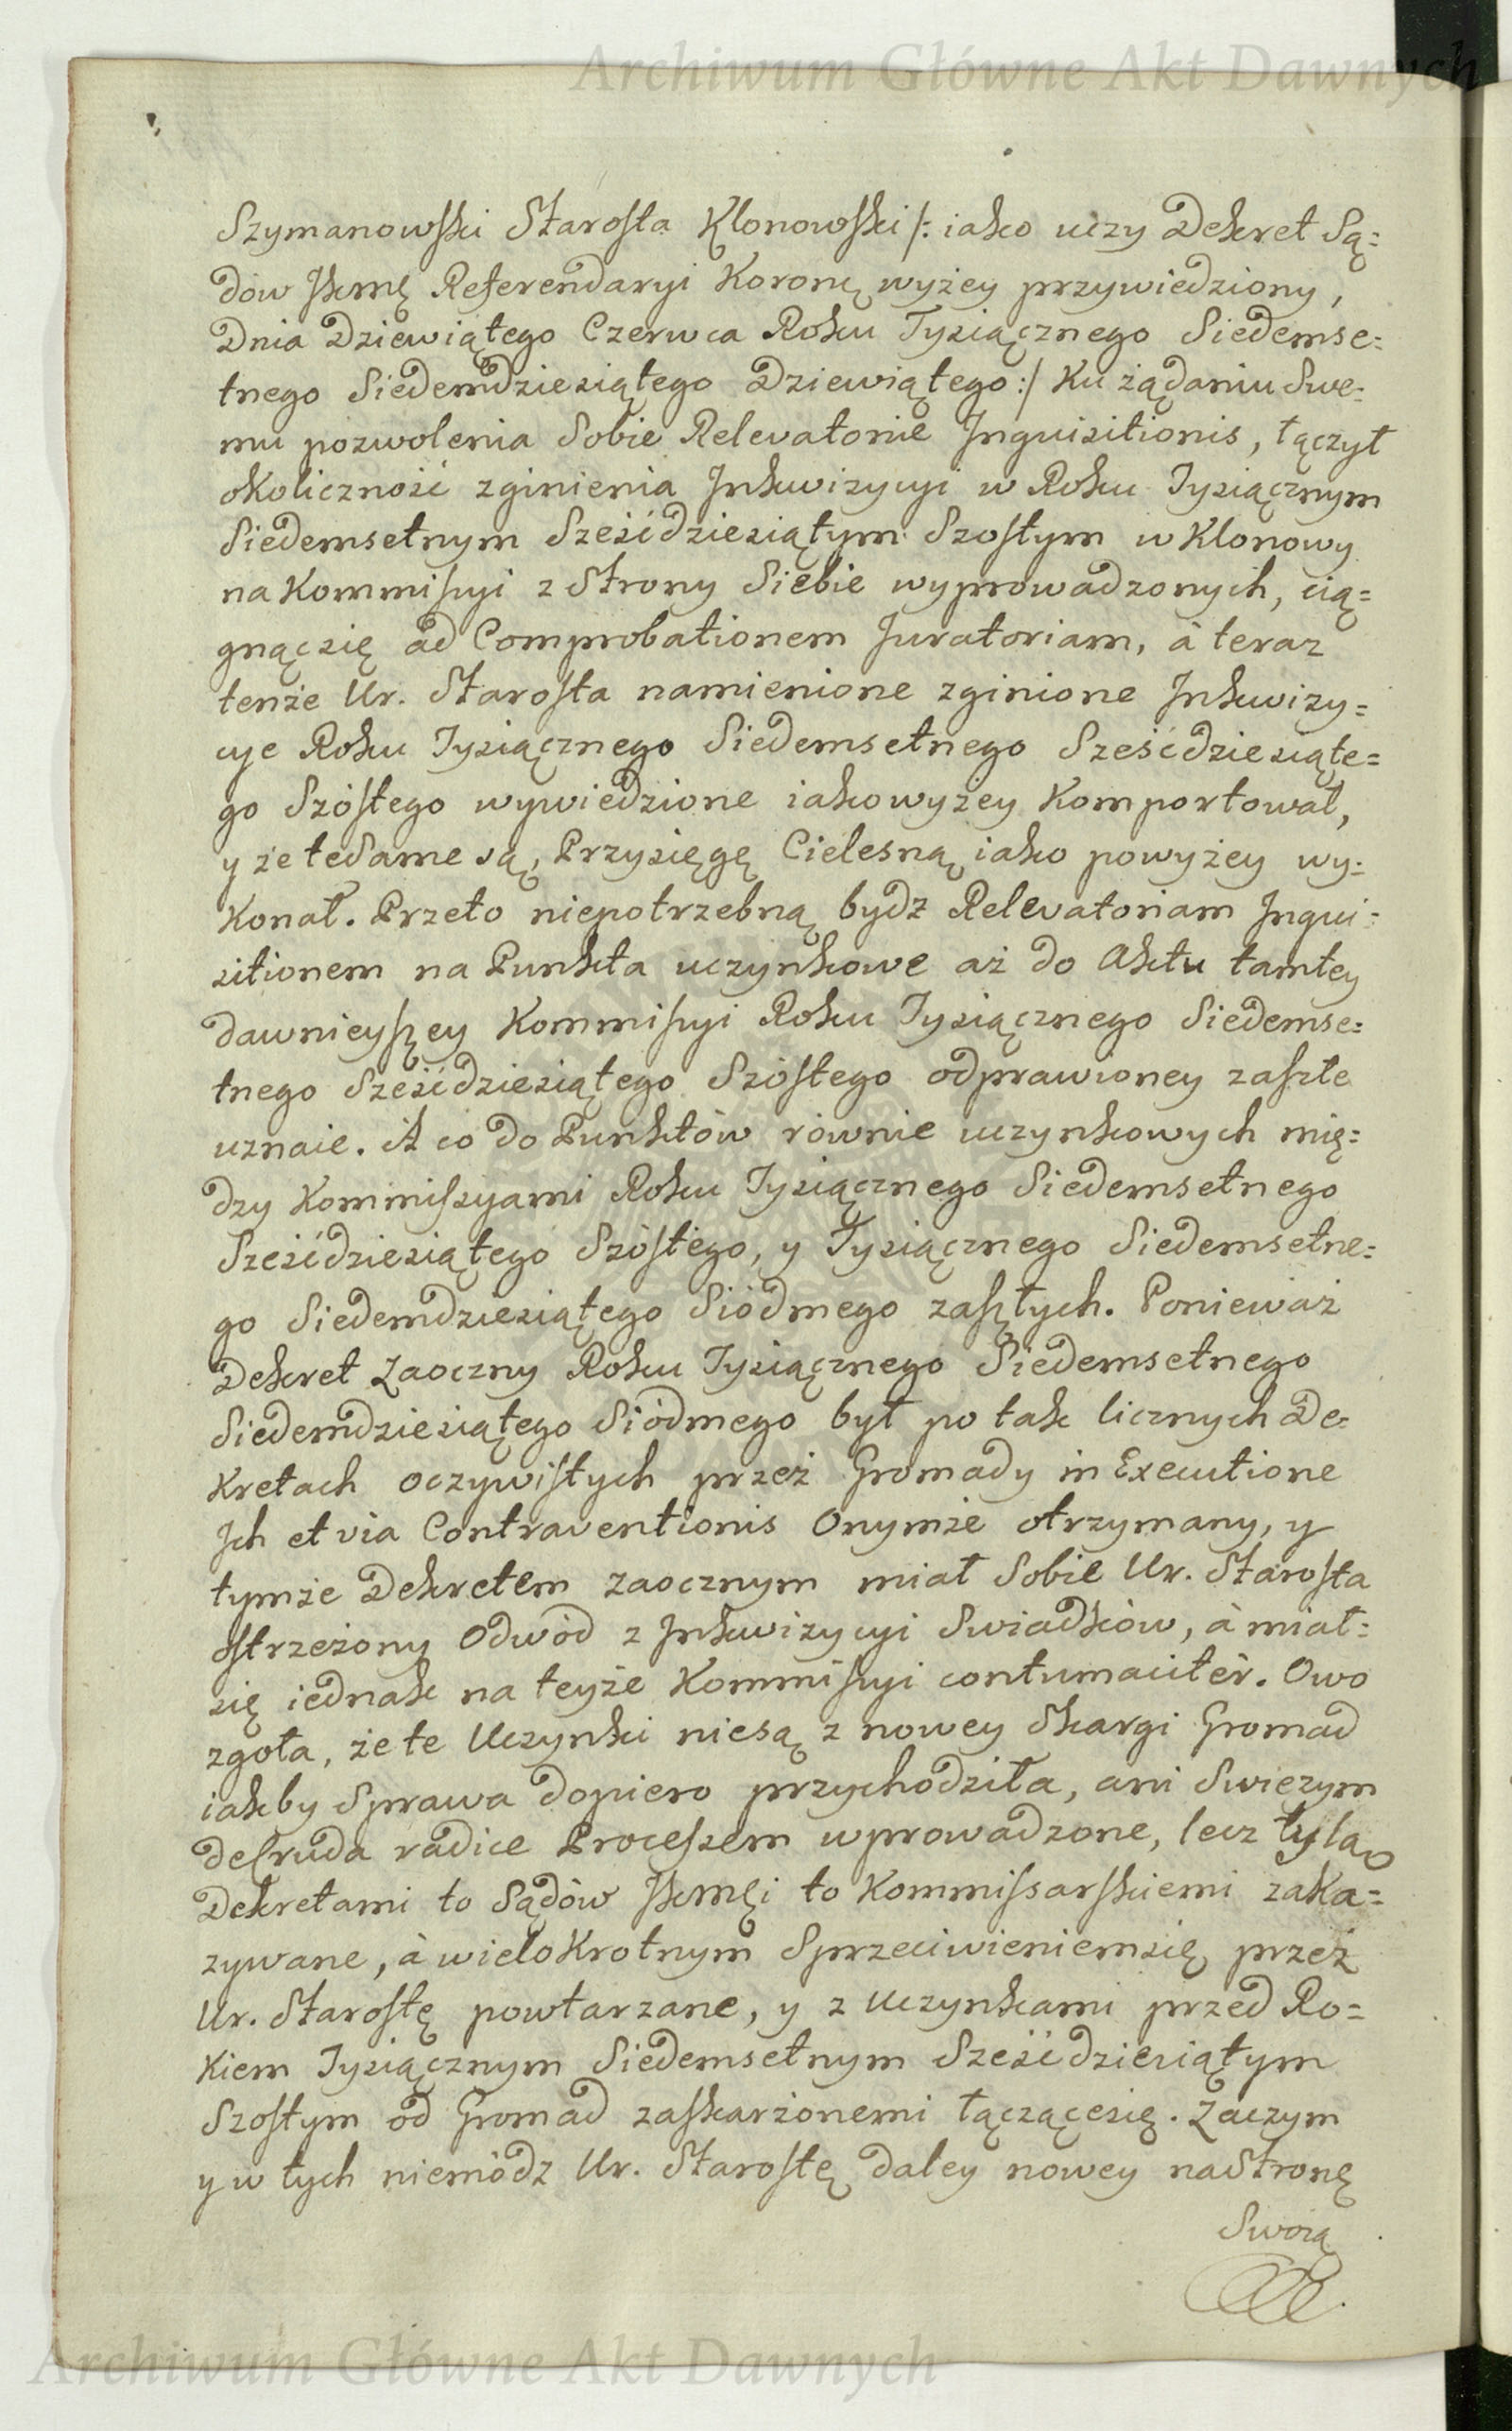 Archiwum Główne Akt Dawnych
Szymanowski Starosta Klonowski /: iako uczy Dekret Są=
dow JKmę Referendaryi Koronę wyżey przywiedziony,
Dnia Dziewiątego Czerwca Roku Tysiącznego Siedemse=
tnego Siedemdziesiątego Dziewiątego :/ Ku żądaniu Swe=
mu pozwolenia Sobie Relevatoriæ Inquisitionis, łączył
okoliczność zginienia Inkwizycyi w Roku Tysiącznym
Siedemsetnym Sześćdziesiątym Szostym w Klonowy
na Kommissyi z Strony Siebie wyprowadzonych, cią=
gnącsię ad Comprobationem Juratoriam, à teraz
tenże Ur. Starosta namienione zginione Inkwizy=
cye Roku Tysiącznego Siedemsetnego Sześćdziesiąte=
go Szóstego wywiedzione iakowyżey Komportował,
y że teSame są, Przysięgę Cielesną iako powyżey wy=
Konał. Przeto niepotrzebną bydz Relevatoriam Inqui=
sitionem na Punkta uczynkowe aż do Aktu tamtey
dawnieyszey Kommissyi Roku Tysiącznego Siedemse=
tnego Sześćdziesiątego Szóstego odprawioney zaszłe
uznaie. A co do Punktów równie uczynkowych mię=
dzy Kommissyami Roku Tysiącznego Siedemsetnego
Sześćdziesiątego Szóstego, y Tysiącznego Siedemsetne=
go Siedemdziesiątego Siódmego zaszłych. Ponieważ
Dekret Zaoczny Roku Tysiącznego Siedemsetnego
Siedemdziesiątego Siódmego był po tak licznych De=
Kretach oczywistych przez Gromady in Executione
Ich et via Contraventionis Onymże otrzymany, y
tymże Dekretem zaocznym miał Sobie Ur. Starosta
ostrzeżony Odwód z Inkwizycyi Swiadków, à miał=
się iednak na teyże Kommissyi contumacitèr. Owo
zgoła, że te Uczynki niesą z nowey Skargi Gromad
iakby Sprawa dopiero przychodziła, ani Swieżym
de cruda radice Processem wprowadzone, lecz tylą
Dekretami to Sądów JKmęi to Kommissarskiemi zaka=
zywane, à wieloKrotnym Sprzeciwieniemsię przez
Ur. Starostę powtarzane, y z Uczynkami przed Ro=
Kiem Tysiącznym Siedemsetnym Sześćdziesiątym
Szostym od Gromad zaskarżonemi łączącesię. Zaczym
y w tych niemódz Ur. Starostę daley nowey naStronę
Swoią
Archiwum Główne Akt Dawnych